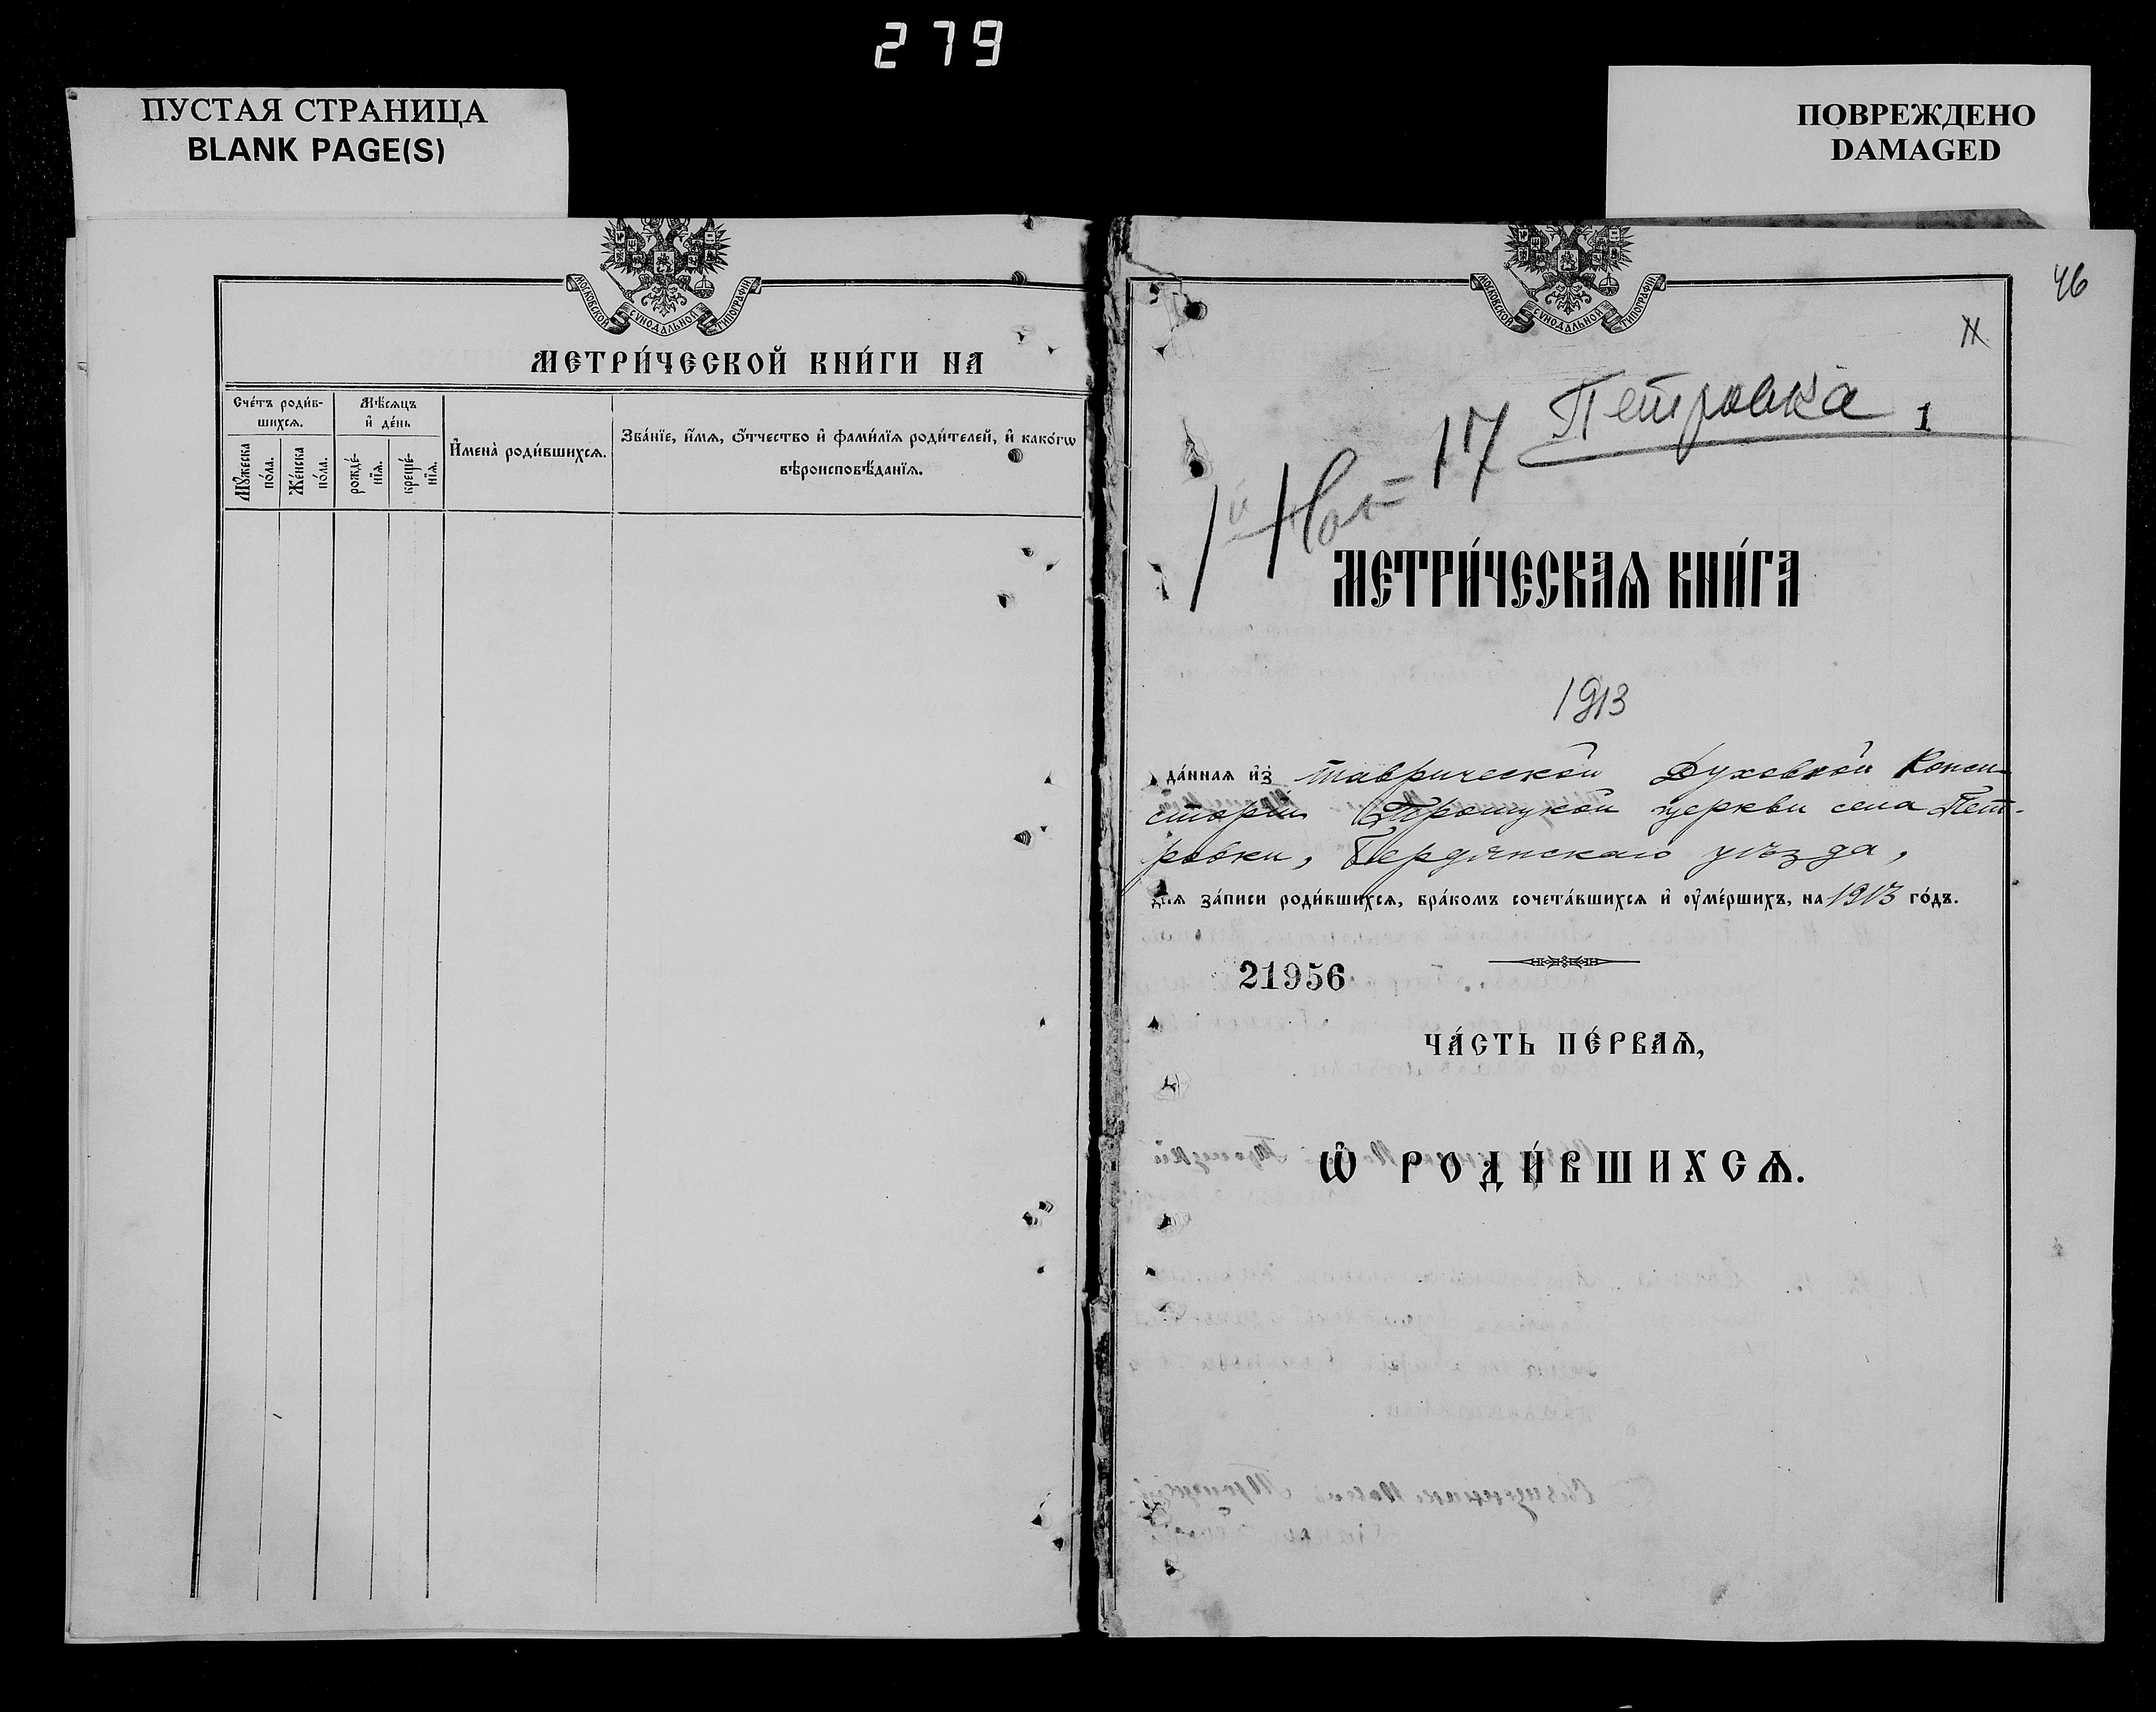 279
ПУСТАЯ СТРАНИЦА
BLANK PAGE(S)
ПОВРЕЖДЕНО
DAMAGED
МОСКОВСКОЙ СѴНОДАЛЬНОЙ ТИПОГРАФІИ
МЕТРИ́ЧЕСКОЙ КНИ́ГИ НА
Сче́тъ роди́в-
шихсѧ.
Мѣ́сѧцъ
и҆ де́нь
Мꙋ́жеска
по́ла.
Же́нска
по́ла.
рожде́-
нїѧ.
креще́-
нїѧ.
И҆мена̀ роди́вшихсѧ.
Зва́нїе, и҆́мѧ, ѻ҆́тчество и҆ фами́лїѧ роди́телей, и҆ како́гѡ
вѣроисповѣ́данїѧ.
МОСКОВСКОЙ СѴНОДАЛЬНОЙ ТИПОГРАФІИ
46
Петровка
1
17
МЕТРИ́ЧЕСКАѦ КНИ́ГА
1913
да́ннаѧ и҆з̾ Таврической Духовной Конси-
сторіи Троицкой церкви села Пет-
ровки, Бердянскаго уѣзда,
длѧ за́писи роди́вшихсѧ, бра́комъ сочета́вшихсѧ и҆ ᲂу҆ме́ршихъ, на 1913 го́дъ.
21956
ЧА́СТЬ ПЕ́РВАѦ,
Ѡ҆ РОДИ́ВШИХСѦ.